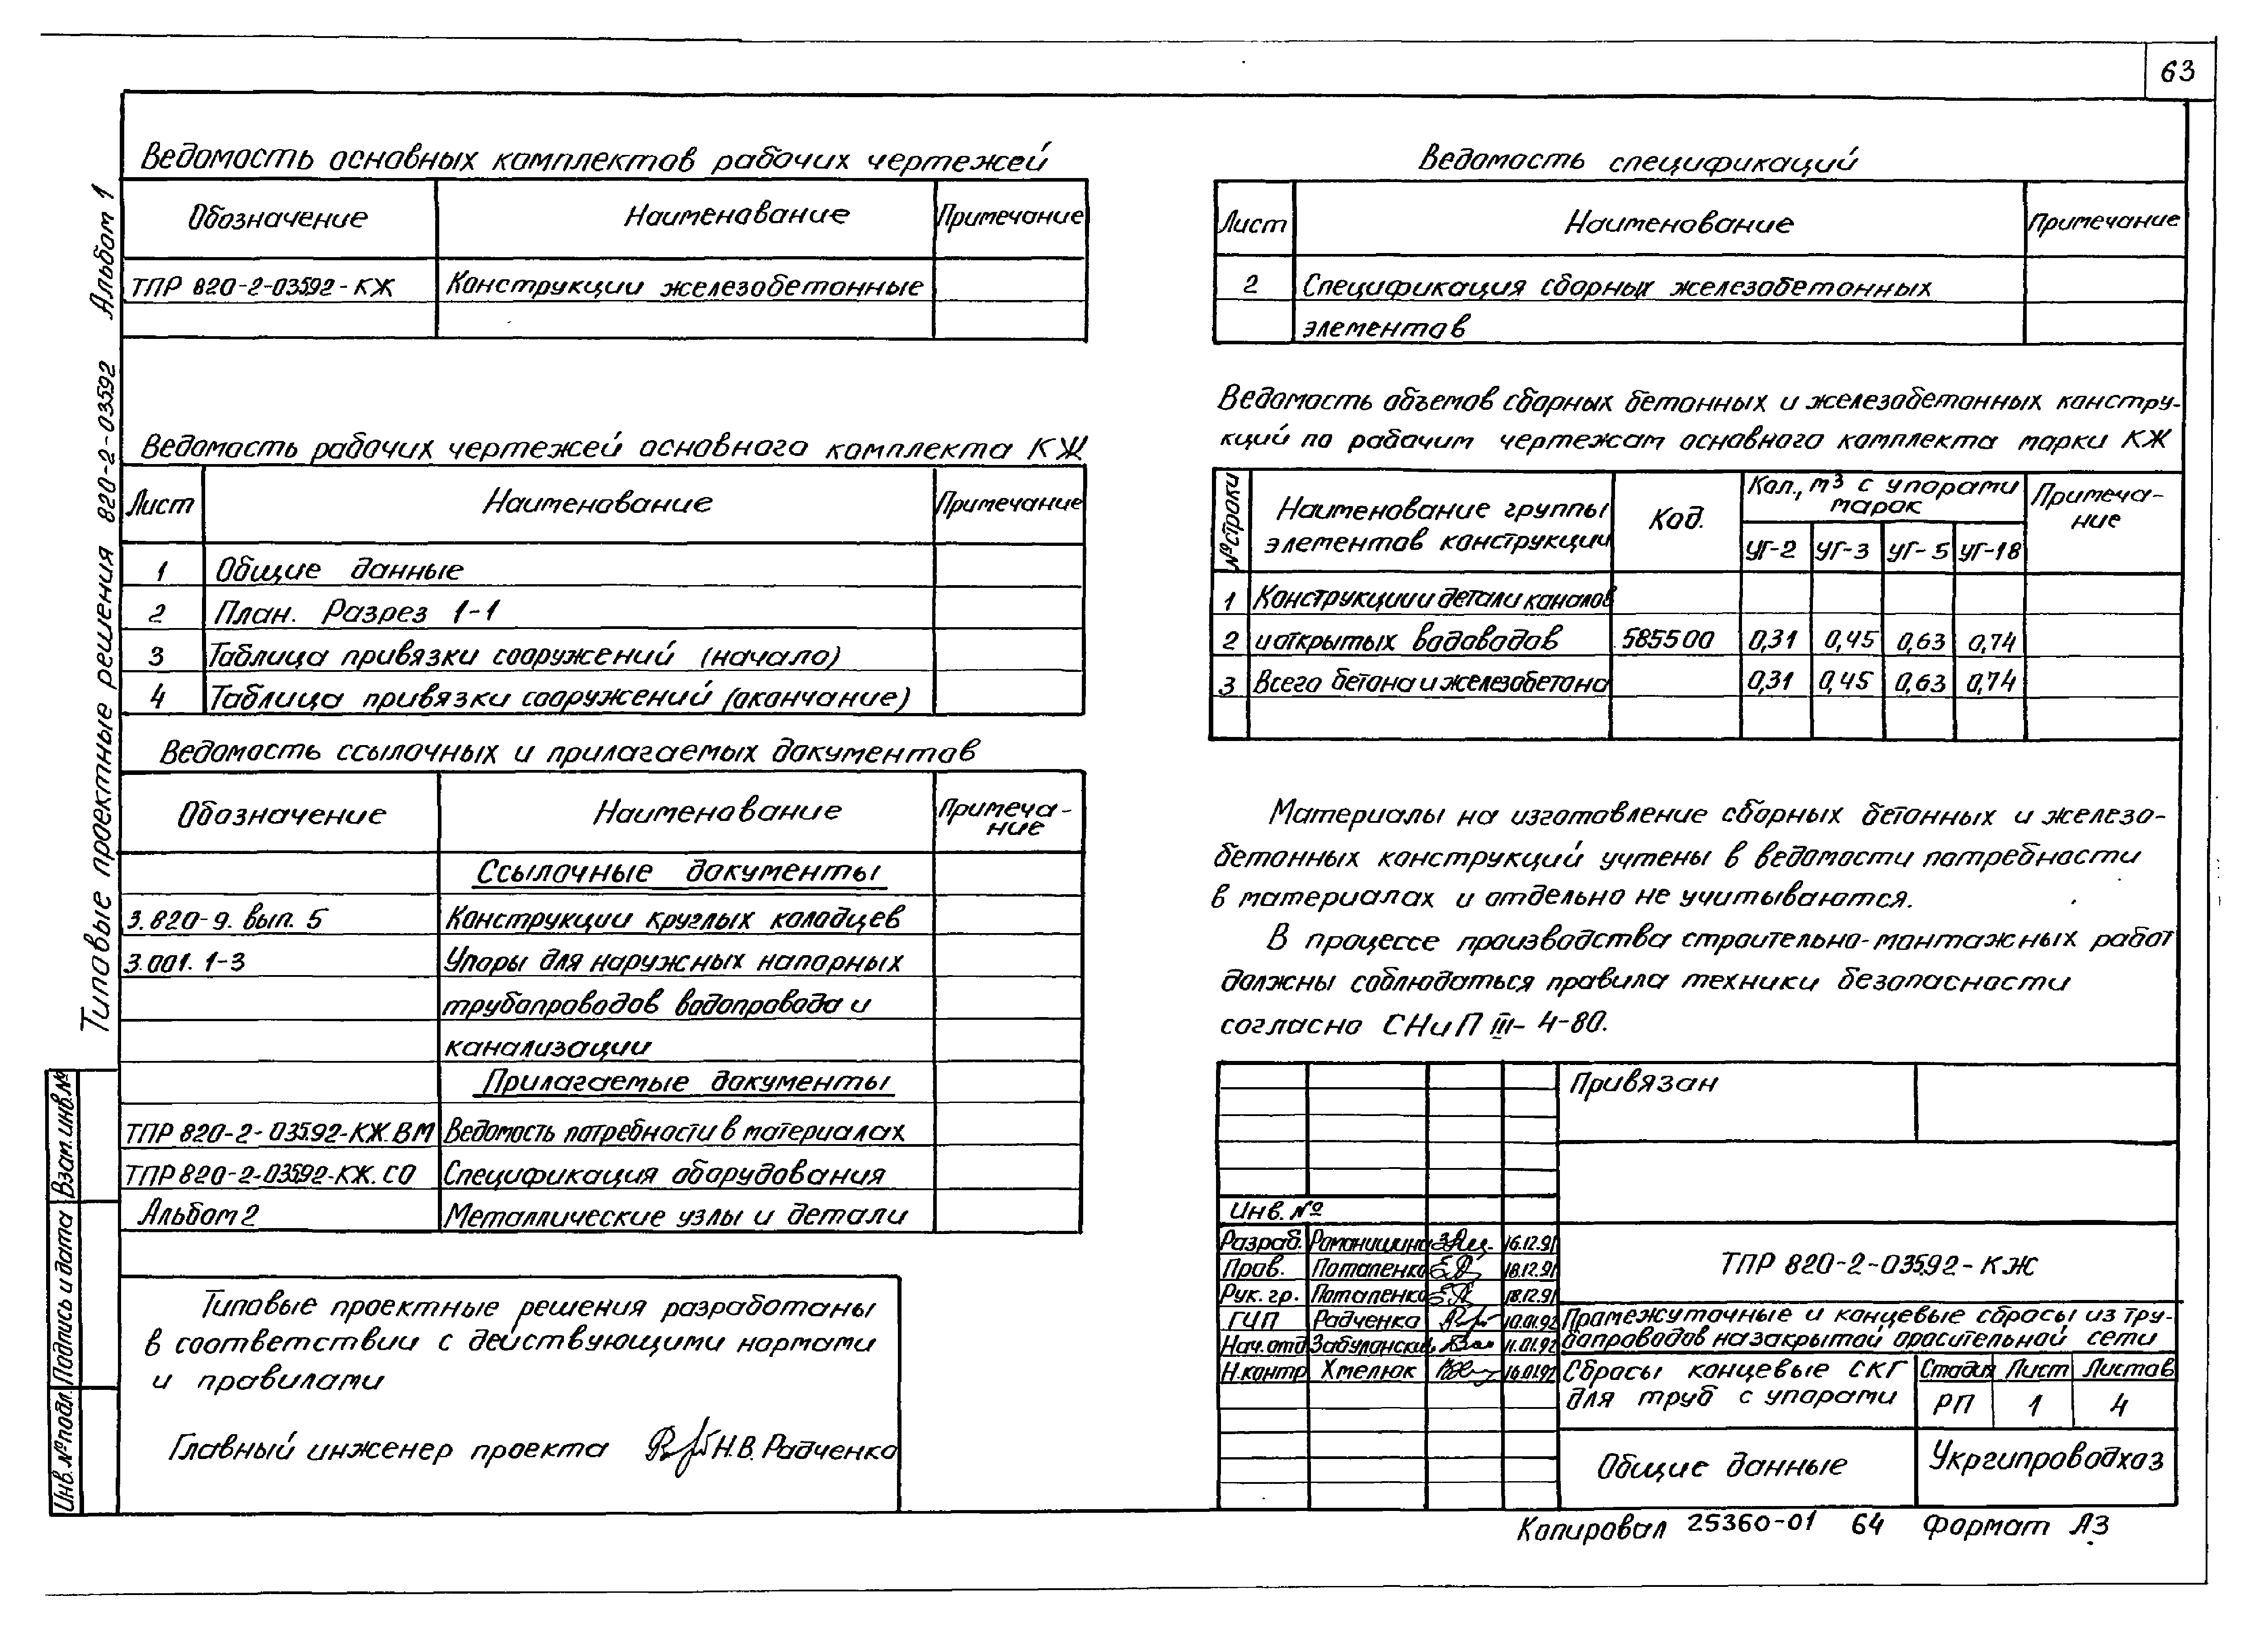 63
Типовые проектные решения 820-2-03592 Альбом 1
Ведомость основных комплектов рабочих чертежей
Обозначение Наименование Примечание
ТПР 820-2-03592-КЖ Конструкции железобетонные
Ведомость рабочих чертежей основного комплекта КЖ
Лист Наименование Примечание
1 Общие данные
2 План. Разрез 1-1
3 Таблица привязки сооружений (начало)
4 Таблица привязки сооружений (окончание)
Ведомость ссылочных и прилагаемых документов
Обозначение Наименование Примеча-
ние
Ссылочные документы
3.820-9. вып. 5 Конструкции круглых колодцев
3.001. 1-3 Упоры для наружных напорных
трубопроводов водопровода и
канализации
Прилагаемые документы
ТПР 820-2-03592-КЖ.ВМ Ведомость потребности в материалах
ТПР 820-2-03592-КЖ.СО Спецификация оборудования
Альбом 2 Металлические узлы и детали
Типовые проектные решения разработаны
в соответствии с действующими нормами
и правилами
Главный инженер проекта Н.В. Радченко
Взам. инв. №
Подпись и дата
Инв. № подл.
Ведомость спецификаций
Лист Наименование Примечание
2 Спецификация сборных железобетонных
элементов
Ведомость объемов сборных бетонных и железобетонных констру-
кций по рабочим чертежам основного комплекта марки КЖ
№ строки Наименование группы
элементов конструкции Код. Кол., м3 с упорами
марок Примеча-
ние
УГ-2 УГ-3 УГ-5 УГ-18
1 Конструкции и детали каналов
2 и открытых водоводов 585500 0,31 0,45 0,63 0,74
3 Всего бетона и железобетона 0,31 0,45 0,63 0,74
Материалы на изготовление сборных бетонных и железо-
бетонных конструкций учтены в ведомости потребности
в материалах и отдельно не учитываются.
В процессе производства строительно-монтажных работ
должны соблюдаться правила техники безопасности
согласно СНиП III-4-80.
Привязан
Инв. №
Разраб. Романишина 16.12.91
Пров. Потапенко 18.12.91
Рук. гр. Потапенко 18.12.91
ГИП Радченко 10.01.92
Нач. отд. Забуланский 11.01.92
Н.контр Хмелюк 16.01.92
ТПР 820-2-03592-КЖ
Промежуточные и концевые сбросы из тру-
бопроводов на закрытой оросительной сети
Сбросы концевые СКГ
для труб с упорами
Стадия Лист Листов
РП 1 4
Общие данные
Укргипроводхоз
Копировал 25360-01 64 Формат А3